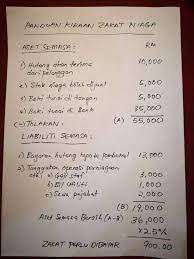 PANDUAN KIRAAN ZAKAT NIAGA
ASET SEMASA: RM
1) Hutang akan terima 10,000
dari pelanggan
2) Stok niaga boleh dijual 5,000
3) Baki tunai di tangan 5,000
4) Baki tunai di Bank 35,000
(A) 55,000
(-) TOLAKAN:
LIABILITI SEMASA:
1) Bayaran hutang kepada pembekal 13,000
2) Tunggakan operasi perniagaan
cth: a) Gaji staf 3,000
b) Bil utiliti 1,000
c) Sewa pejabat 2,000
(B) 19,000
Aset Semasa Bersih (A-B) 36,000
x 2.5%
ZAKAT PERLU DIBAYAR 900.00